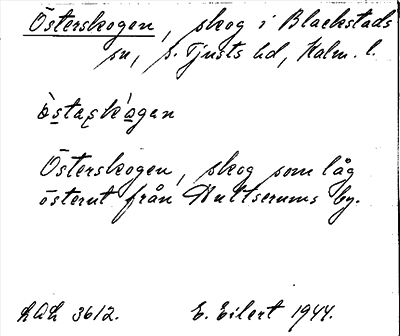 Österskogen, skog i Blackstads
sn, s. Tjusts hd, Kalm. l.
östaskogan
Österskogen, skog som låg
österut från Hultserums by.
LDL 3612. E. Eilert 1944.